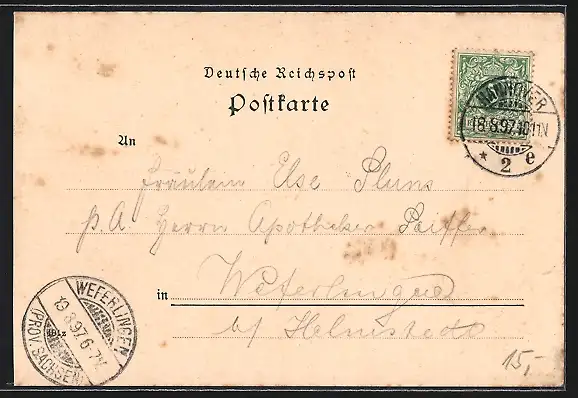 Deutsche Reichspost
Postkarte
HANNOVER
18.8.97.10-11N
* 2 e
An
Fräulein Else
p. A. Herrn Apotheker
in Weferlingen
b/ Helmstedt
WEFERLINGEN
19.8.97.6-7V.
(PROV. SACHSEN)
15,-